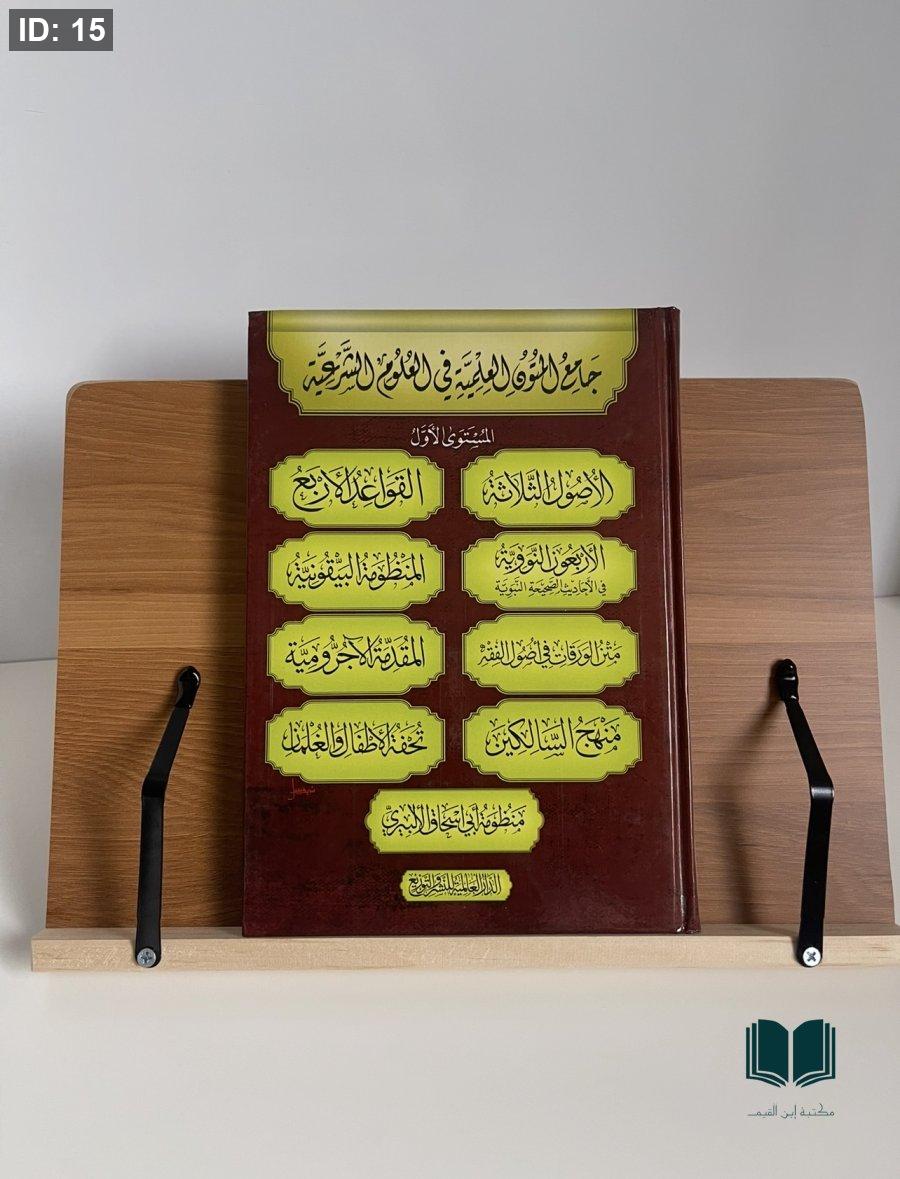 ID: 15
جَامِعُ المُتُونِ العِلْمِيَّةِ فِي العُلُومِ الشَّرْعِيَّةِ
المُسْتَوَى الأَوَّلُ
الأُصُولُ الثَّلَاثَةُ
القَوَاعِدُ الأَرْبَعُ
الأَرْبَعُونَ النَّوَوِيَّةُ
فِي الأَحَادِيثِ الصَّحِيحَةِ النَّبَوِيَّةِ
المَنْظُومَةُ البَيْقُونِيَّةُ
مَتْنُ الوَرَقَاتِ فِي أُصُولِ الفِقْهِ
المُقَدِّمَةُ الآجُرُّومِيَّةُ
مَنْهَجُ السَّالِكِينَ
تُحْفَةُ الأَطْفَالِ وَالغِلْمَانِ
مَنْظُومَةُ أَبِي إِسْحَاقَ الأَلْبِيرِيِّ
الدَّارُ العَالَمِيَّةُ لِلنَّشْرِ وَالتَّوْزِيعِ
مكتبة إبن القيم